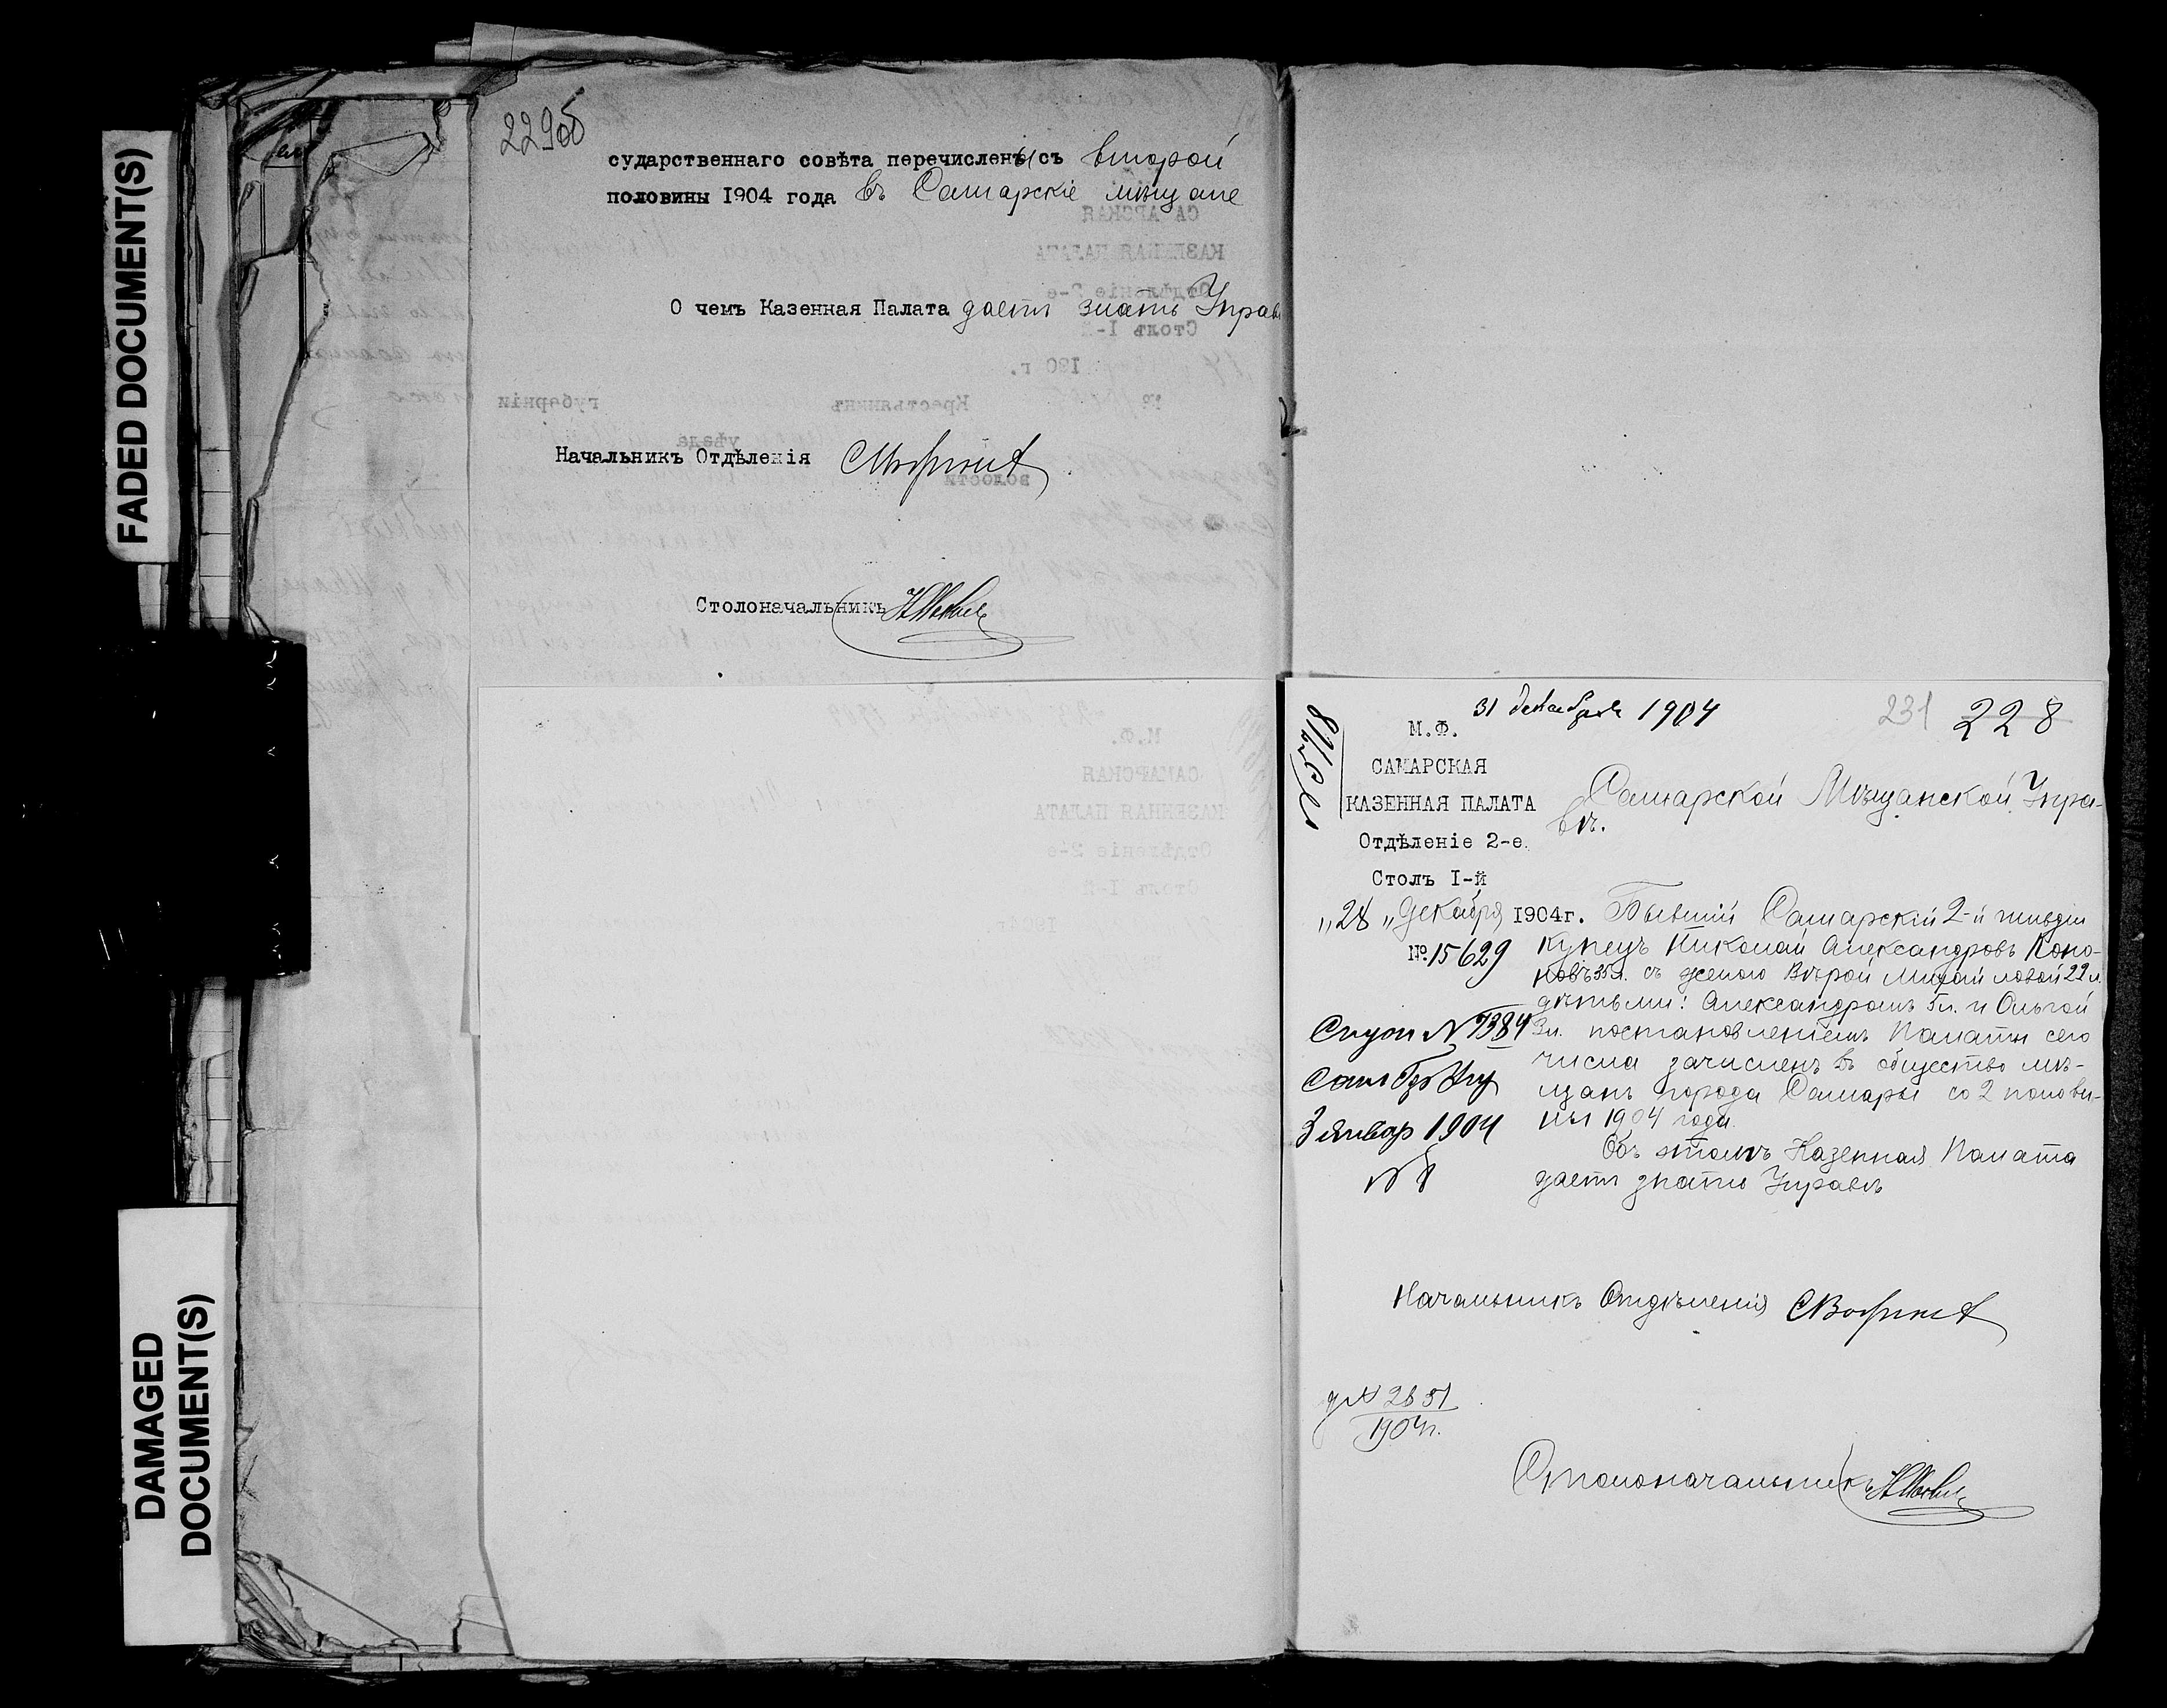 FADED DOCUMENT(S)
DAMAGED
DOCUMENT(S)
229об
сударственнаго совѣта перечислены съ второй
половины 1904 года въ Самарскіе мѣщане
О чемъ Казенная Палата даетъ знать Управ
Начальникъ Отдѣленія
Столоначальникъ
31 декабря 1904
231 228
№ 5718
М.Ф.
САМАРСКАЯ
КАЗЕННАЯ ПАЛАТА
Отдѣленіе 2-е.
Столъ I-й
"28" Декабря 1904г.
№ 15629
Самарской Мѣщанской Упра-
вѣ.
Бывшій Самарскій 2-й гильдіи
купецъ Николай Александровъ Коно-
новъ 35 л. съ женою Вѣрой Михайловой 22 л.
дѣтьми: Александромъ 5 л. и Ольгой
3 л. постановленіемъ Палаты сего
числа зачисленъ въ общество мѣ-
щанъ города Самары со 2 полови-
ны 1904 года.
Объ этомъ Казенная Палата
даетъ знать Управѣ
№ 7384
3 Январ 1904
№ 8
Начальникъ Отдѣленія
д № 2851
1904 г.
Столоначальникъ